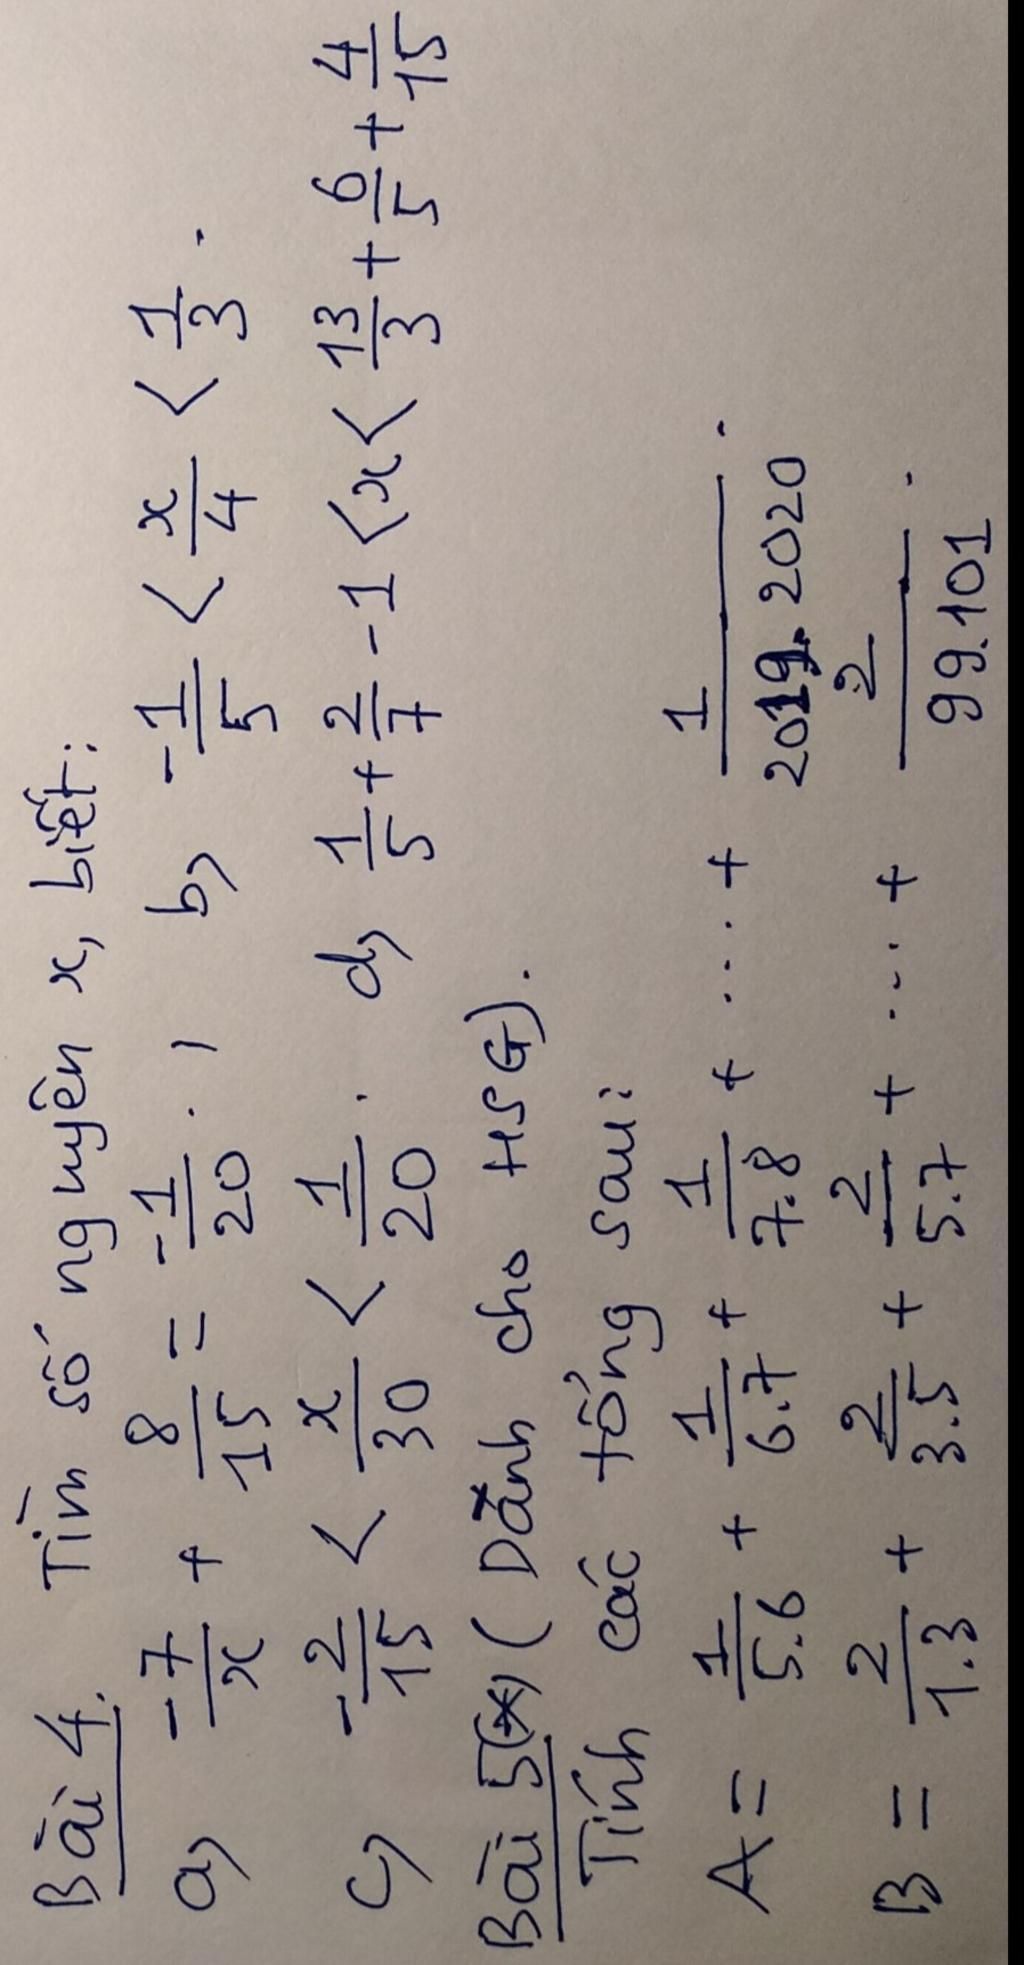 Bài 4. Tìm số nguyên x, biết:
a) -7/x + 8/15 = -1/20 . , b) -1/5 < x/4 < 1/3 .
c) -2/15 < x/30 < 1/20 . d) 1/5 + 2/7 - 1 < x < 13/3 + 6/5 + 4/15
Bài 5(*) (Dành cho HSG).
Tính các tổng sau:
A = 1/5.6 + 1/6.7 + 1/7.8 + .... + 1/2019.2020 .
B = 2/1.3 + 2/3.5 + 2/5.7 + .... + 2/99.101 .